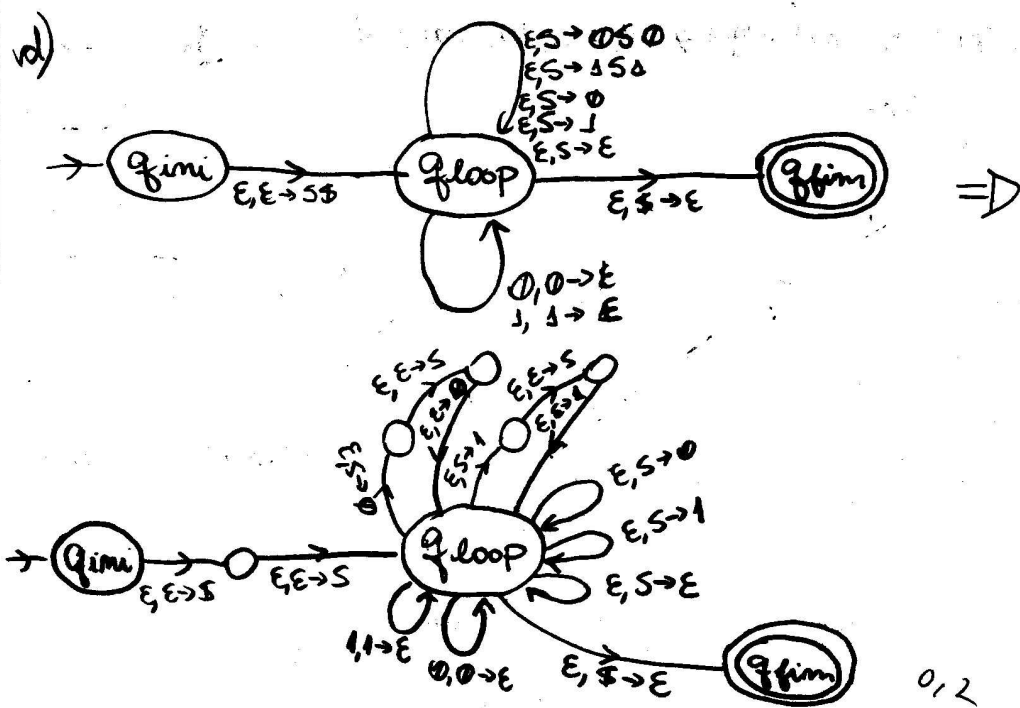 d)
ε,S→0S0
ε,S→1S1
ε,S→0
ε,S→1
ε,S→ε
qini
ε,ε→S$
qloop
ε,$→ε
qfim
=>
0,0→ε
1,1→ε
ε,ε→S
ε,ε→0
ε,S→0
ε,ε→S
ε,S→1
ε,S→1
ε,S→0
ε,S→1
ε,S→ε
qini
ε,ε→$
ε,ε→S
qloop
1,1→ε
0,0→ε
ε,$→ε
qfim
0,2